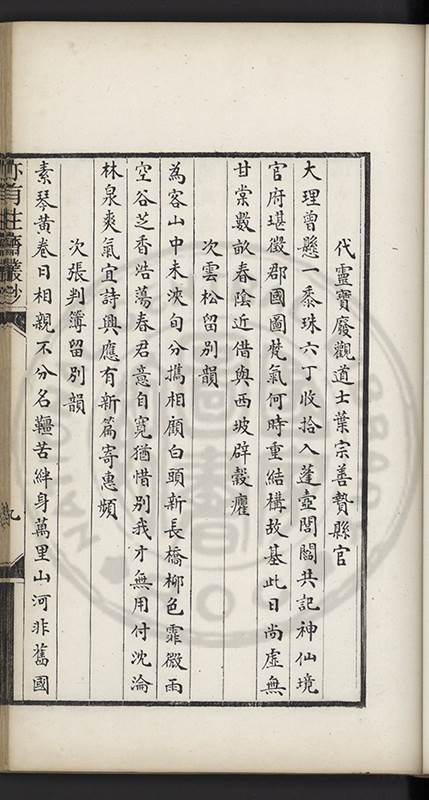 代靈寶廢觀道士葉宗善贄縣官
大理曾懸一黍珠六丁收拾入蓬壺閭閻共記神仙境
官府堪徵郡國圖梵氣何時重結構故基此日尚虛無
甘棠數畝春陰近借與西坡辟穀癯
次雲松留別韻
為客山中未浹旬分攜相顧白頭新長橋柳色霏微雨
空谷芝香浩蕩春君意自寬猶惜別我才無用付沈淪
林泉爽氣宜詩興應有新篇寄惠頻
次張判簿留別韻
素琴黃卷日相親不分名韁苦絆身萬里山河非舊國
亦有生齋叢鈔
九